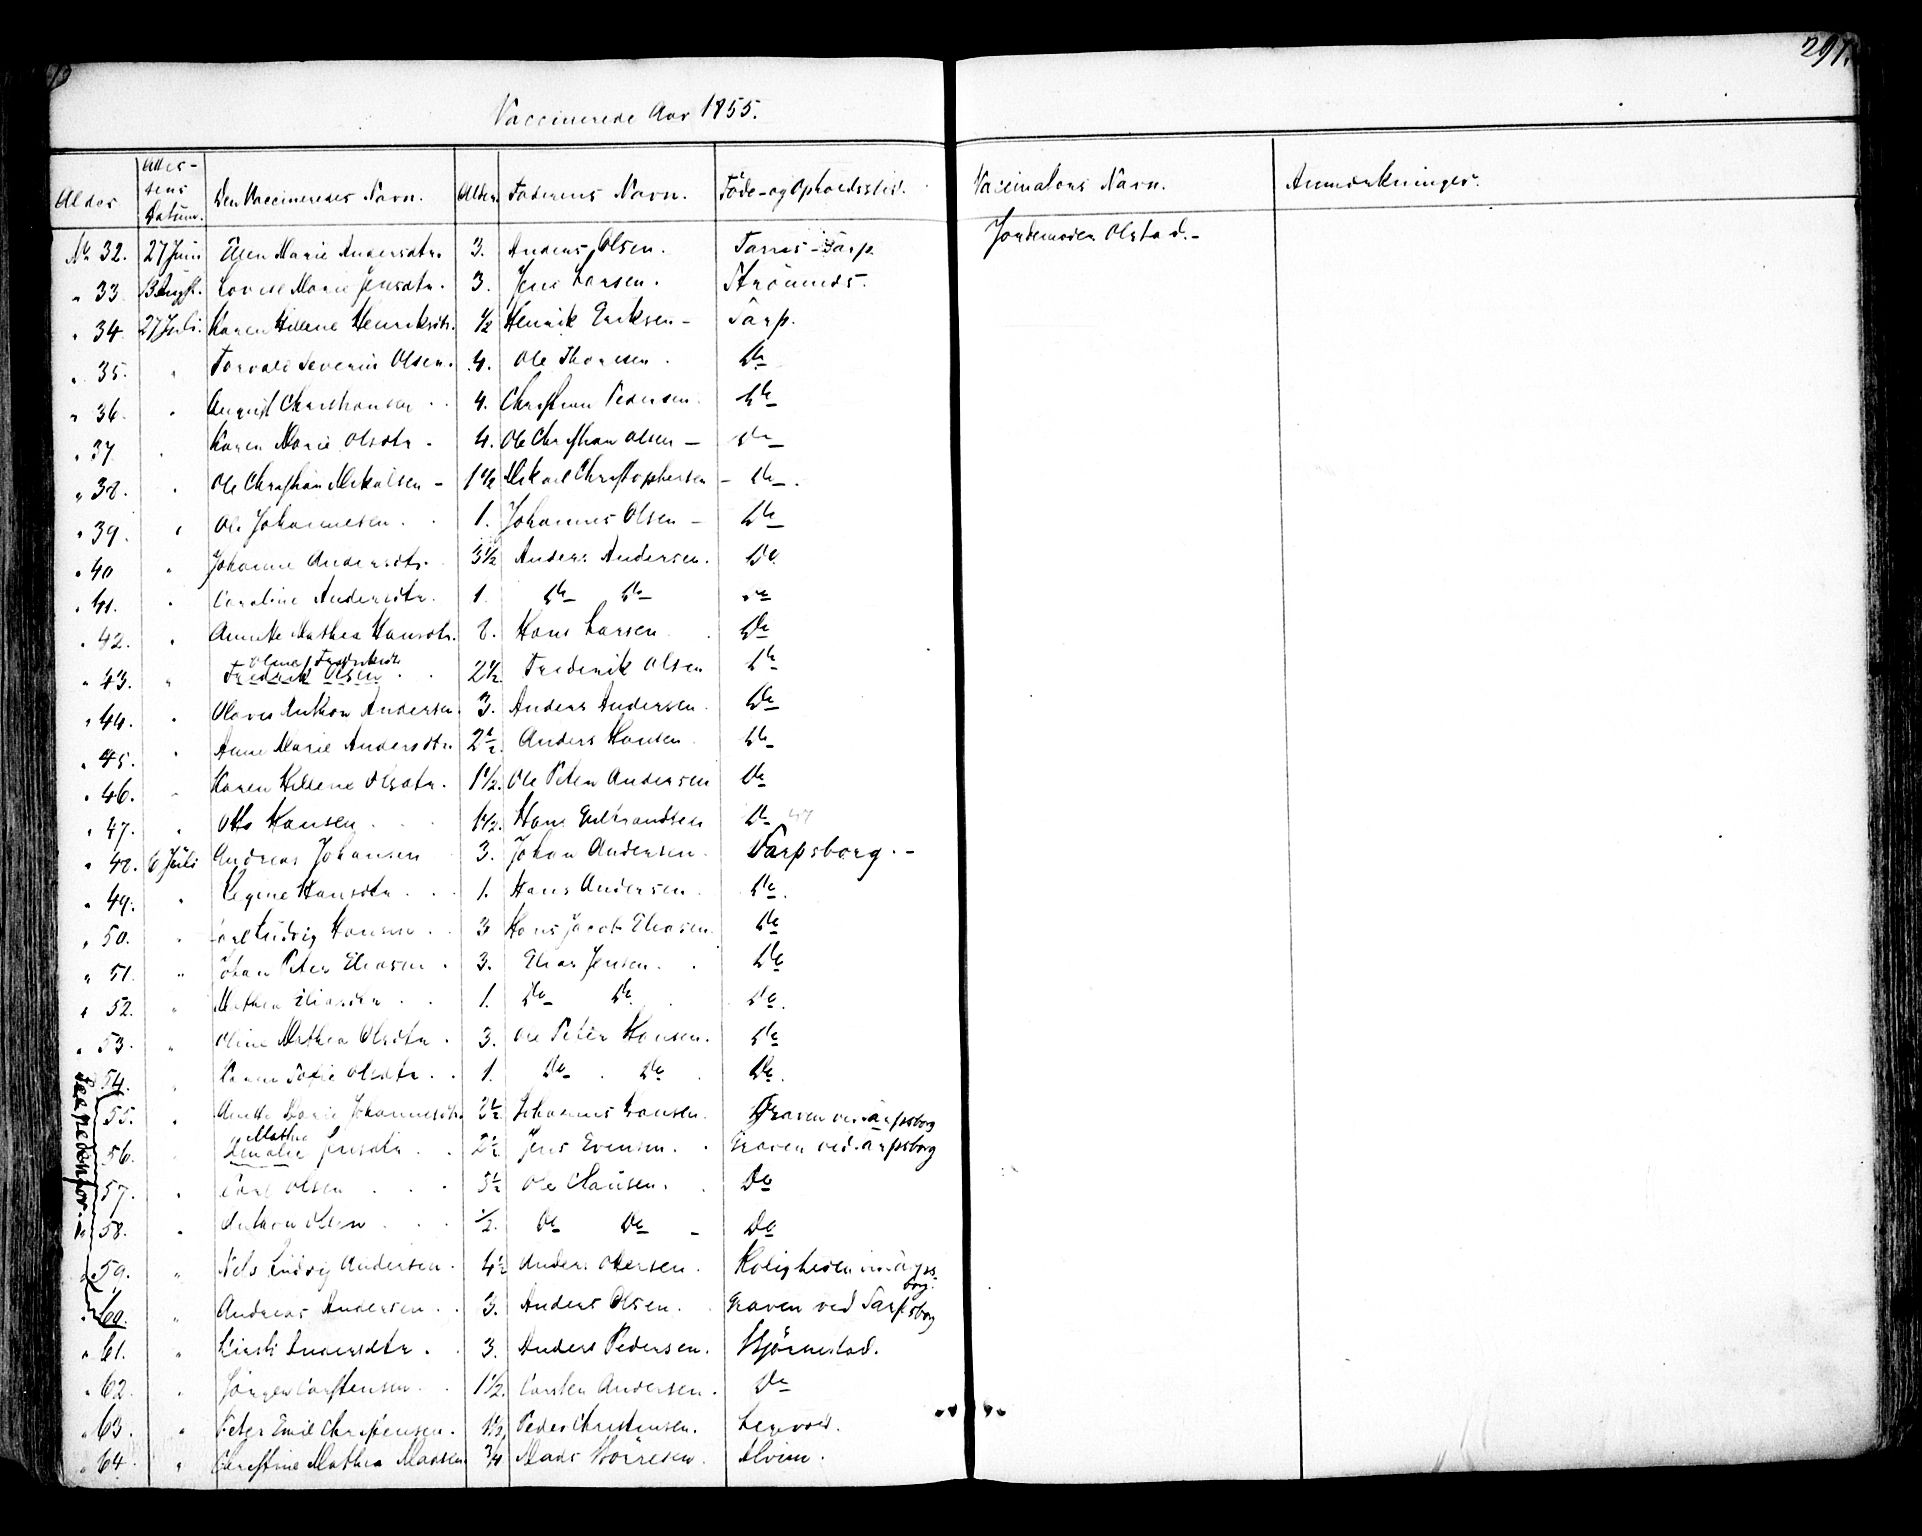 297.
Vaccinerede Aar 1855.
Alder Attestens Datum. Den Vaccineredes Navn. Alder. Faderens Navn. Føde- og Opholdssted. Vaccinatons Navn. Anmærkninger.
No 32. 27 Juni Ellen Marie Andersdtr. 3. Anders Olsen. Jordemoder Olstad.
" 33 Lovise Marie Jensdtr. 3. Jens Larsen.
" 34. 27 Juli. Karen Hellene Henriksdtr. 1/2 Henrik Eriksen - Sarp.
" 35. " Torvald Severin Olsen. 4. Ole Thoresen. Do
" 36. " August Christiansen 4. Christian Pedersen. Do
" 37. " Karen Marie Olsdtr. 4. Ole Christian Olsen - Do
" 38. " Ole Christian Mikalsen - 1 1/2 Mikael Christophersen - Do
" 39. " Ole Johannesen. 1. Johannes Olsen - Do
" 40 " Johanne Andersdtr. 3 1/2 Anders Andersen. Do
" 41. " Caroline Andersdtr. 1. Do Do Do
" 42. " Annette Mathea Hansdtr. Hans Larsen Do
" 43. " Oline Fredriksdtr Fredrik Olsen 2 1/2 Frederik Olsen Do
" 44. " Olaves Anthon Andersen. 3. Anders Andersen. Do
" 45. " Anne Marie Andersdtr. 2 1/2 Anders Hansen Do
" 46. " Karen Hellene Olsdtr. 1 1/2. Ole Peter Andersen Do
" 47. " Otto Hansen 1 1/2. Hans Gulbrandsen Do
" 48. 6 Juli Andreas Johansen 3. Johan Andersen. Sarpsborg. -
" 49. " Regine Hansdtr 1. Hans Andersen Do
" 50. " Carl Ludvig Hansen 3 Hans Jacob Eliasen. Do
" 51. " Johan Peter Eliasen. 3. Elias Jensen. Do
" 52. " Mathea Eliasdtr 1. Do Do Do
" 53. " Oline Mathea Olsdtr. 3. Ole Peter Hansen. Do
54. " Sofie Olsdtr. 1. Do Do Do
55. " Anette Marie Johannesdtr. 2 1/2 Johannes Hansen. Graven ved Sarpsborg
56. Mathea Amalie Jensdtr 2 1/2 Jens Evensen. Graven ved Sarpsborg
57. " Carl Olsen 5 1/2 Ole Clausen. Do
58. " Anthon Olsen 1/2. Do Do Do
59. " Nels Ludvig Andersen. 4 1/2 Anders Roligheden ved Sarpsborg.
60. " Andreas Andersen. 3. Anders Olsen. Graven ved Sarpsborg
" 61. " Andersdtr. 3. Anders Pedersen. Hjørnestad.
" 62. " Jörgen Carstensen 1 1/2. Carsten Andersen. Do
" 63. " Peter Emil Christensen. 1 1/2. Peder Christensen.
" 64. " Christine Mathea Madsen 3/4 Mads Alvim.